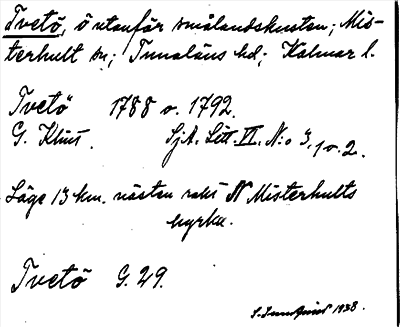 Tvetö, ö utanför smålandskusten; Mis-
terhult sn; Tunaläns hd; Kalmar l.
Tvetö 1788 o. 1792.
G. Klint. Sj.A. Litt. VI. N:o 3, 1 o. 2.
Läge 13 km. nästan rakt N Misterhults
kyrka.
Tvetö G. 29.
1938.